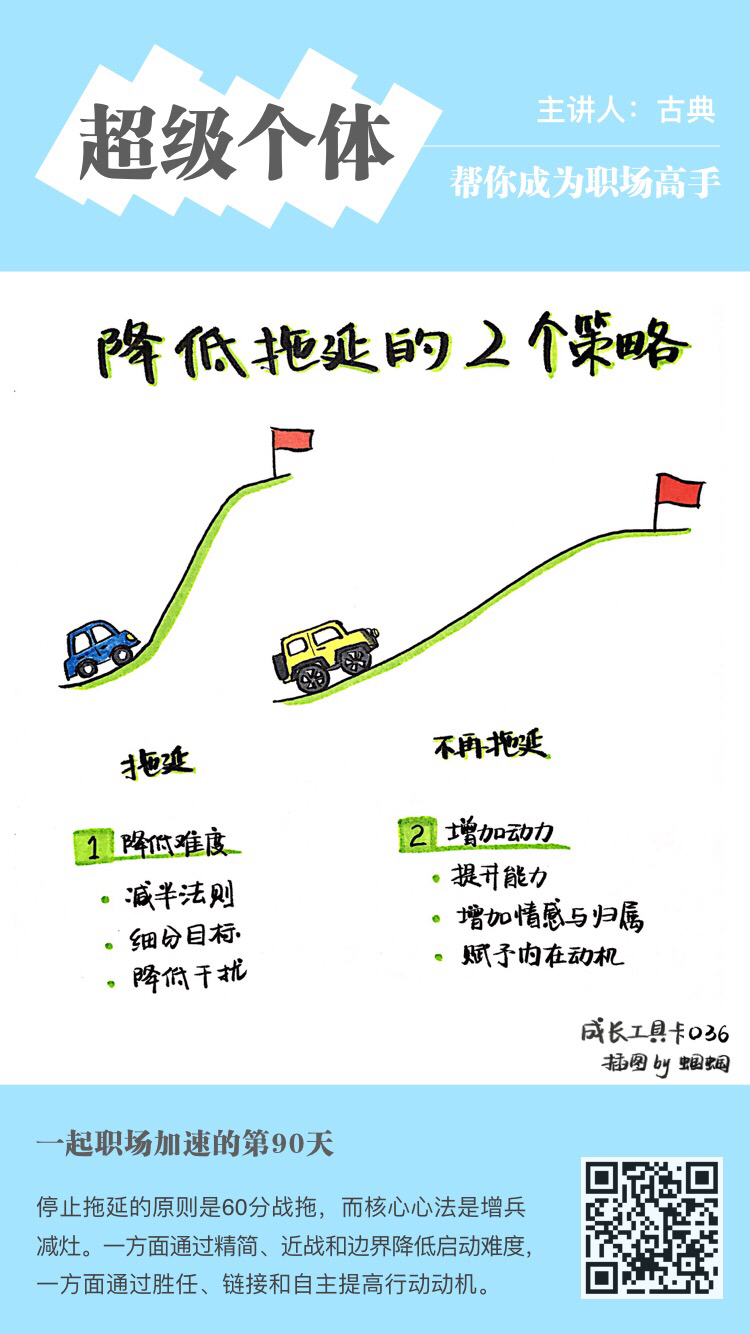 超级个体
主讲人：古典
帮你成为职场高手
降低拖延的2个策略
拖延
不再拖延
1 降低难度
减半法则
细分目标
降低干扰
2 增加动力
提升能力
增加情感与归属
赋予内在动机
成长工具卡036
插图by 蝈蝈
一起职场加速的第90天
停止拖延的原则是60分战拖，而核心心法是增兵
减灶。一方面通过精简、近战和边界降低启动难度，
一方面通过胜任、链接和自主提高行动动机。